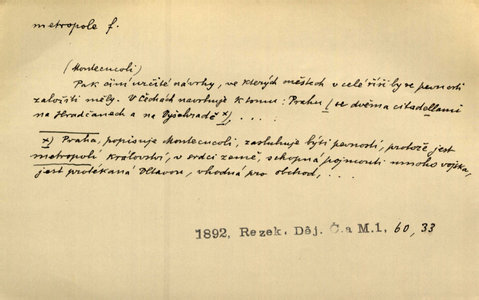 metropole f.
(Montecucoli)
Pak činí určité návrhy, ve kterých městech v celé říši by se pevnosti
založiti měly. V Čechách navrhuje k tomu: Prahu / se dvěma citadellami
na Hradčanech a na Vyšehradě x), . . . .
x) Praha, popisuje Montecucoli, zasluhuje býti pevností, protože jest
metropolí království, v srdci země, schopná pojmouti mnoho vojska,
jest protékaná Vltavou, vhodná pro obchod, . . .
1892, Rezek. Děj. Č. a M. 1, 60, 33